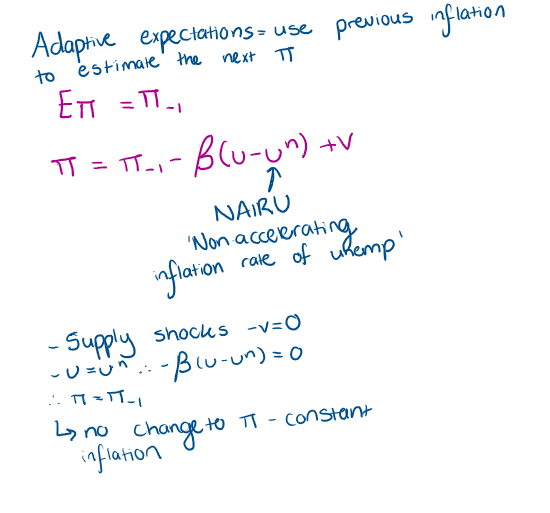 Adaptive expectations = use previous inflation
to estimate the next π
Eπ = π₋₁
π = π₋₁ - β(u-uⁿ) + v
NAIRU
'Non accelerating
inflation rate of unemp'
- Supply shocks - v=0
- u = uⁿ ∴ - β(u-uⁿ) = 0
∴ π = π₋₁
↳ no change to π - constant
inflation